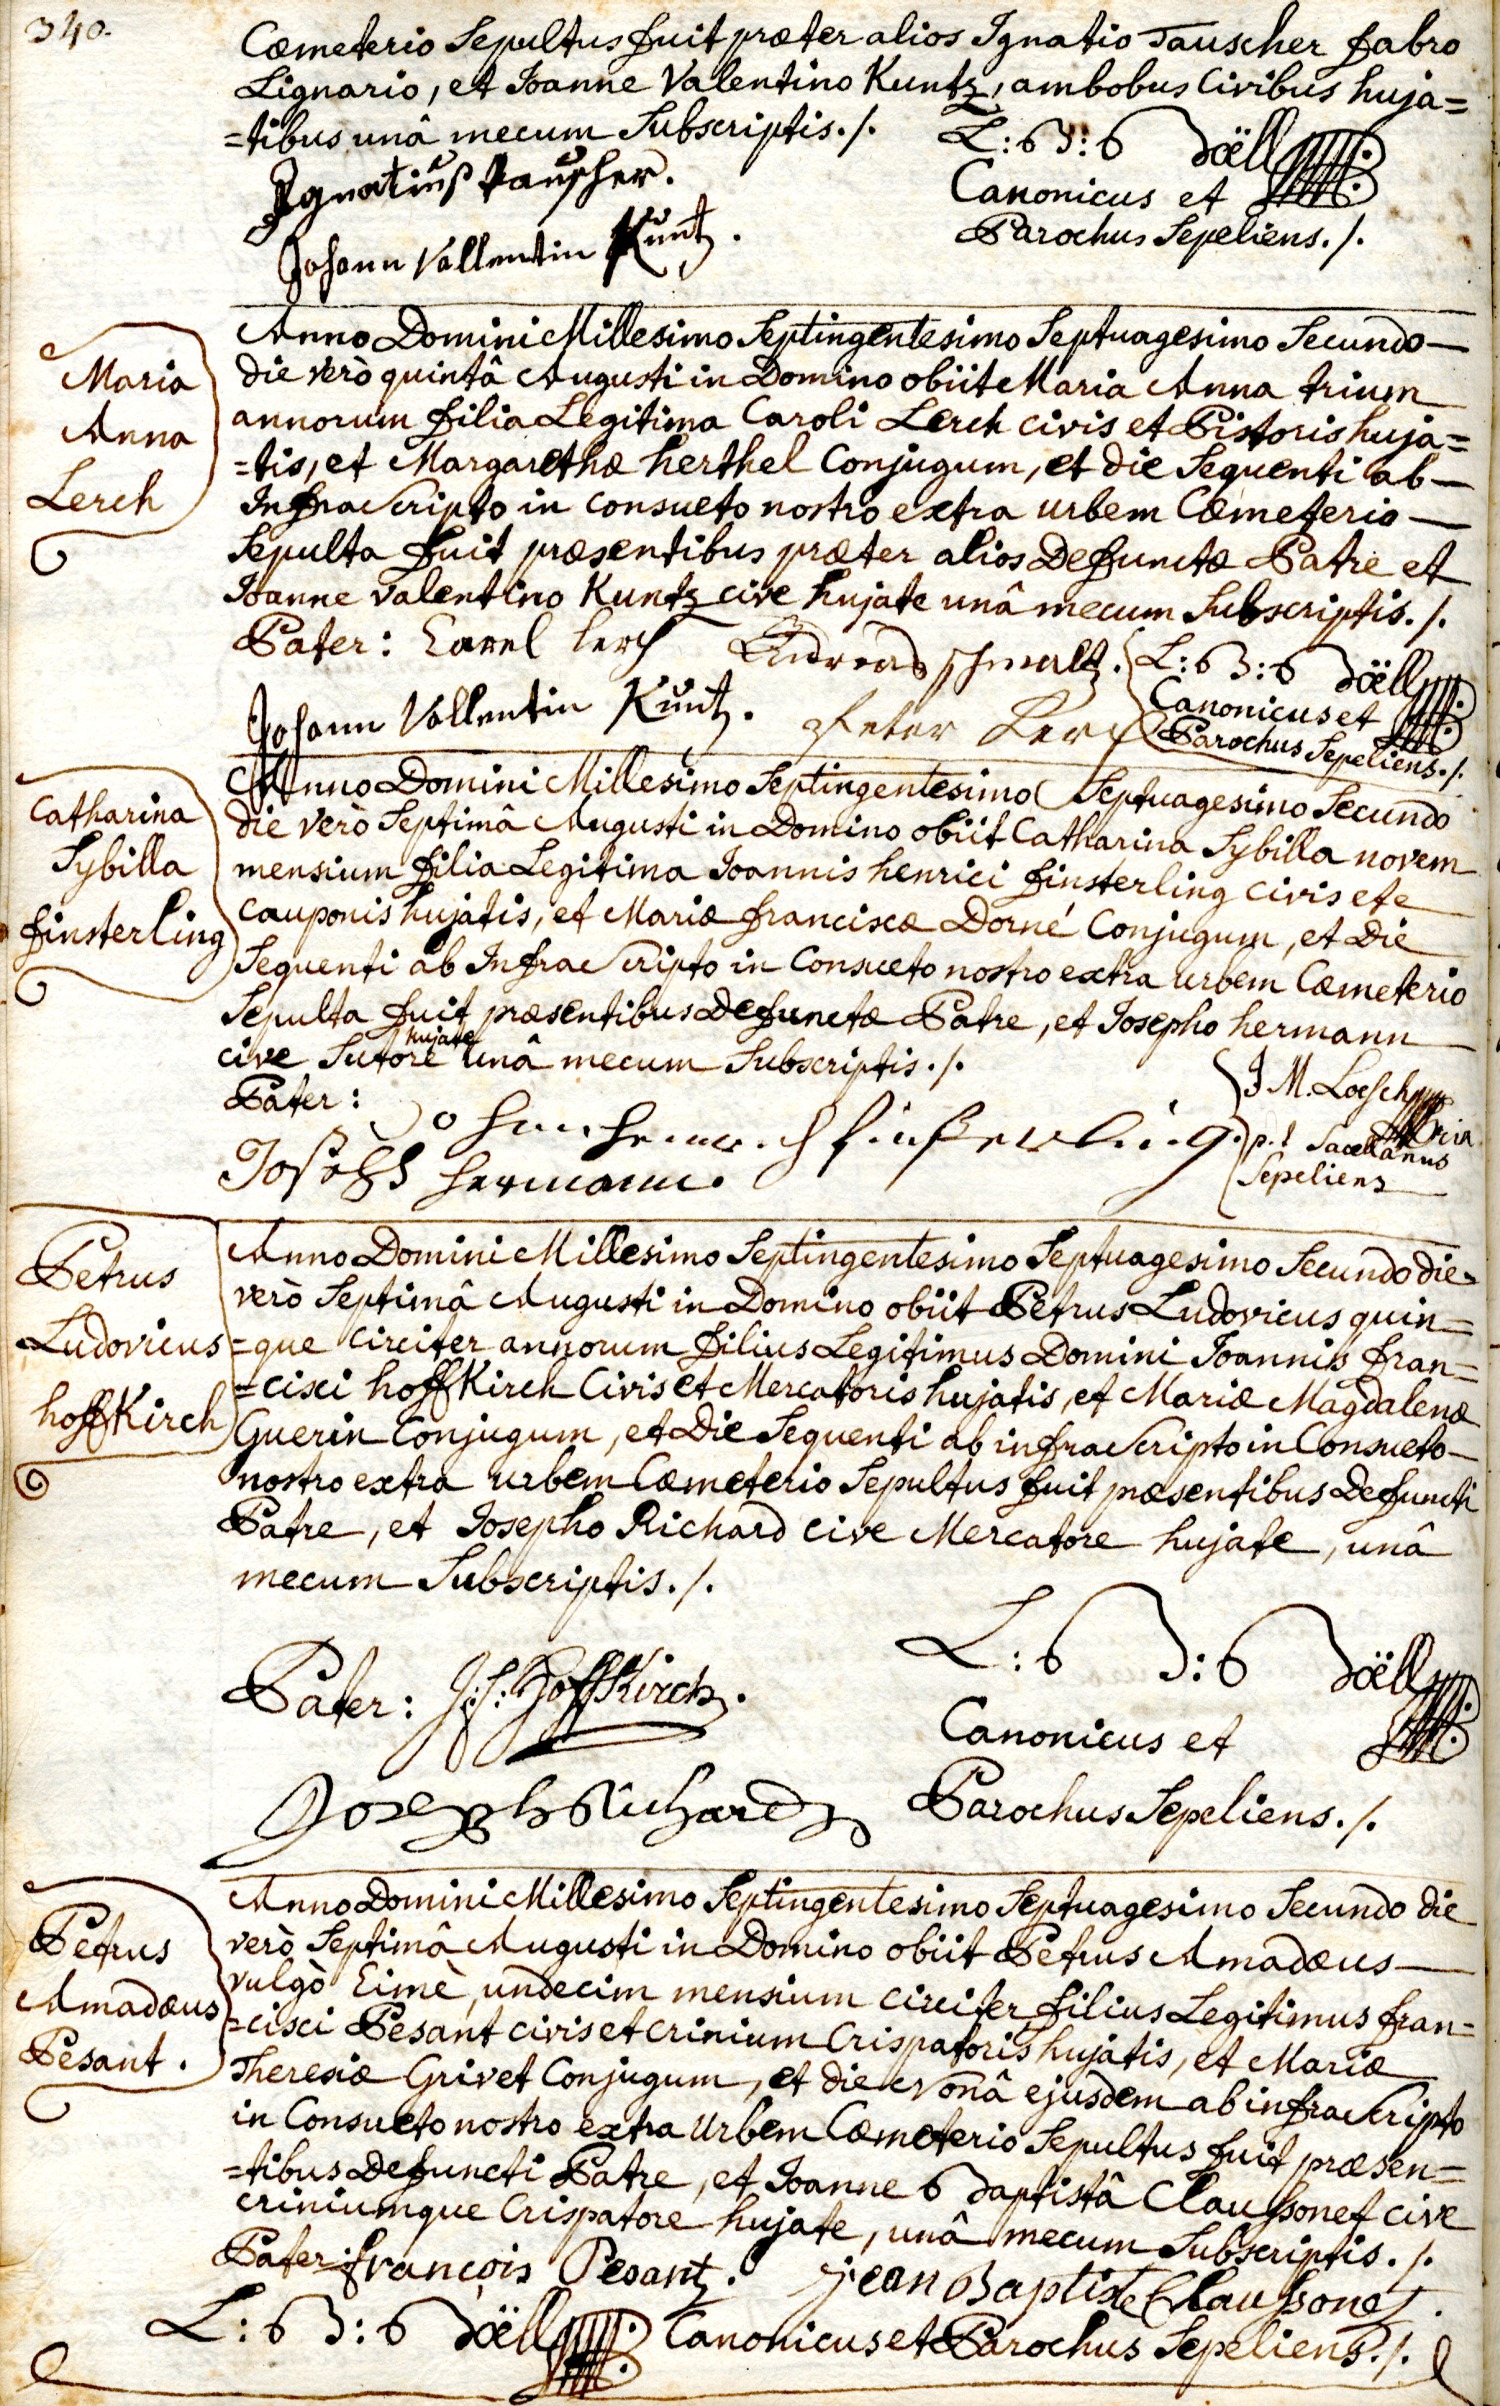 340.
Cœmeterio Sepultus fuit præter alios Ignatio Tauscher fabro
Lignario, et Joanne Valentino Kuntz, ambobus Civibus huja=
=tibus unâ mecum Subscriptis./.
Ignatiuß Tauscher.
Johann Vallentin Kuntz.
L: B: B Doëll
Canonicus et
Parochus Sepeliens./.
Maria
Anna
Lerch
Anno Domini Millesimo Septingentesimo Septuagesimo Secundo
die verò quintâ Augusti in Domino obiit Maria Anna trium
annorum filia Legitima Caroli Lerch civis et Pistoris huja=
=tis, et Margarethæ herthel Conjugum, et die Sequenti ab
Infrascripto in consueto nostro extra urbem Cœmeterio
Sepulta fuit præsentibus præter alios Defunctæ Patre et
Joanne Valentino Kuntz cive hujate unâ mecum Subscriptis./.
Pater: Carel Lerch Andreas schmaltz.
Johann Vallentin Kuntz. Peter Lerch
L: B: B Doëll
Canonicus et
Parochus Sepeliens./.
Catharina
Sybilla
finsterling
Anno Domini Millesimo Septingentesimo Septuagesimo Secundo
die verò Septimâ Augusti in Domino obiit Catharina Sybilla novem
mensium filia Legitima Joannis henrici finsterling civis et
cauponis hujatis, et Mariæ franciscæ Dorné Conjugum, et Die
Sequenti ab Infrascripto in Consueto nostro extra urbem Cœmeterio
Sepulta fuit præsentibus Defunctæ Patre, et Josepho hermann
cive Sutore hujate unâ mecum Subscriptis./.
Pater:
Johan henrich finsterling.
Joseph hermann.
J M. Loesch
p.t Sacellanus
Sepeliens
Petrus
Ludovicus
hoffKirch
Anno Domini Millesimo Septingentesimo Septuagesimo Secundo die
verò Septimâ Augusti in Domino obiit Petrus Ludovicus quin=
=que circiter annorum filius Legitimus Domini Joannis fran=
=cisci hoffKirch Civis et Mercatoris hujatis, et Mariæ Magdalenæ
Guerin Conjugum, et Die Sequenti ab infrascripto in Consueto
nostro extra urbem Cœmeterio Sepultus fuit præsentibus Defuncti
Patre, et Josepho Richard cive Mercatore hujate, unâ
mecum Subscriptis./.
Pater: J: f: HoffKirch.
Joseph Richard
L: B: B Doëll
Canonicus et
Parochus Sepeliens./.
Petrus
Amadæus
Pesant.
Anno Domini Millesimo Septingentesimo Septuagesimo Secundo die
verò Septimâ Augusti in Domino obiit Petrus Amadæus
vulgò Eimè, undecim mensium circiter filius Legitimus fran=
=cisci Pesant civis et crinium Crispatoris hujatis, et Mariæ
Theresiæ Grivet Conjugum, et die Nonâ ejusdem ab infrascripto
in Consueto nostro extra Urbem Cœmeterio Sepultus fuit præsen=
=tibus Defuncti Patre, et Joanne Baptistâ Claussonet cive
criniumque Crispatore hujate, unâ mecum Subscriptis./.
Pater: françois Pesant. jean Baptiste Claussonet.
L: B: B Doëll Canonicus et Parochus Sepeliens./.